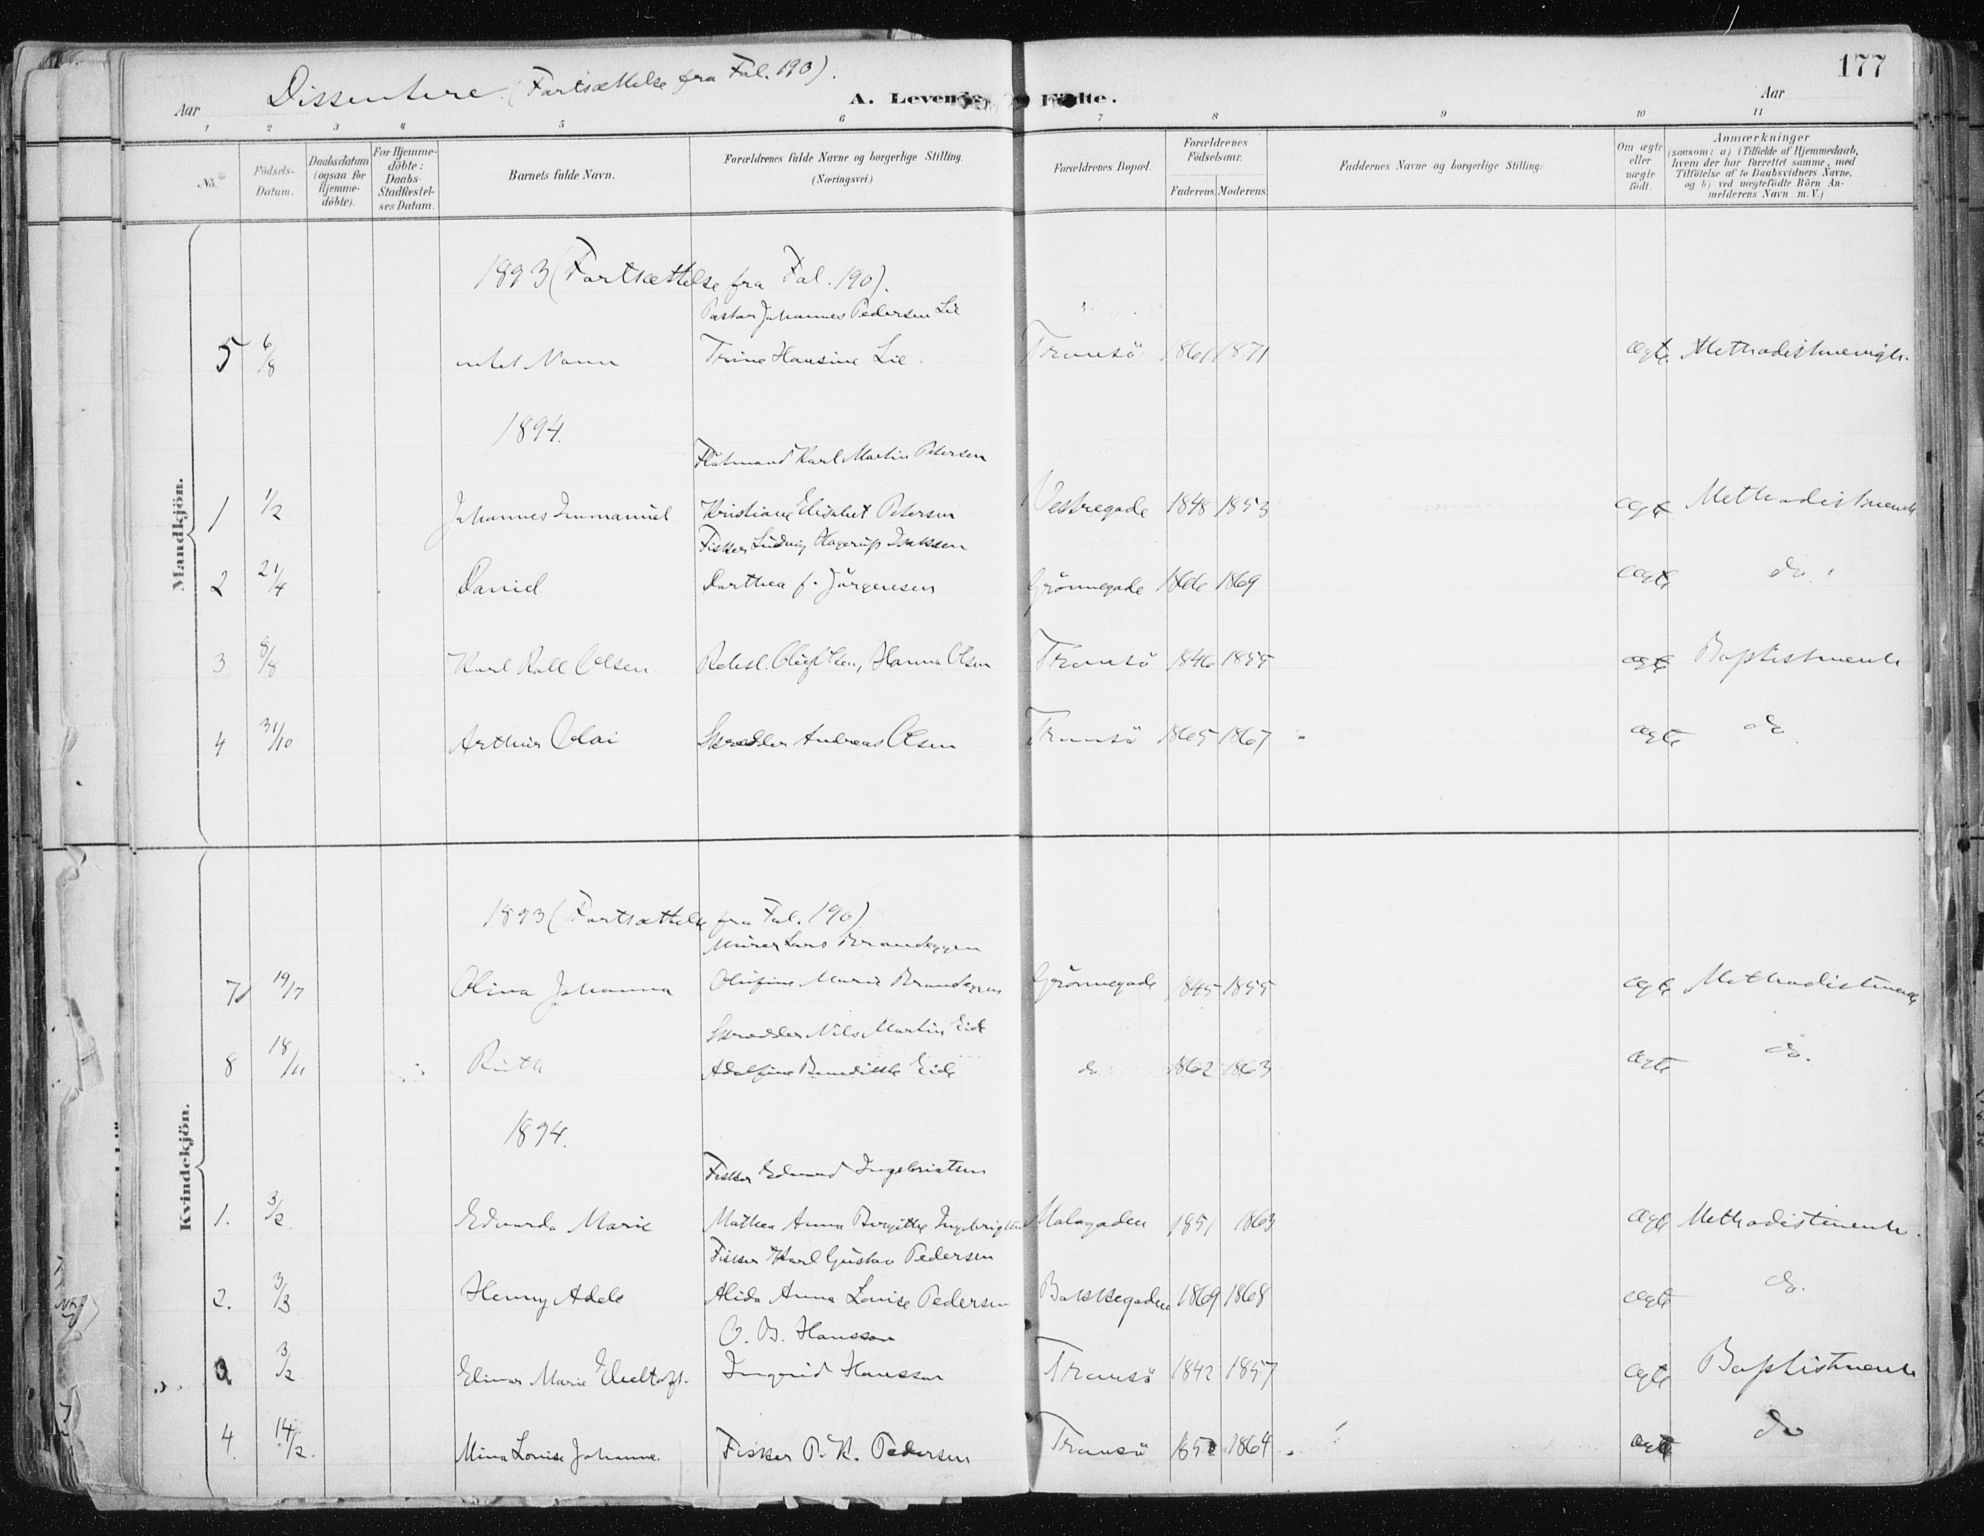 177
Dissentere. (Fortsættelse fra Fol. 190).
Aar A. Levende Födte. Aar
1 2 3 4 5 6 7 8 9 10 11
No. Födsels-Datum. Daabsdatum (ogsaa for Hjemme-döbte). For Hjemme-döbte: Daabs-Stadfestel-ses Datum. Barnets fulde Navn. Forældrenes fulde Navne og borgerlige Stilling. (Næringsvei.) Forældrenes Bopæl. Forældrenes Födselsaar. Faderens. Moderens. Faddernes Navne og borgerlige Stilling: Om ægte eller uægte födt. Anmærkninger (saasom: a) i Tilfælde af Hjemmedaab, hvem der har forrettet samme, med Tilföielse af to Daabsvidners Navne, og b) ved uægtefödte Börn An-melderens Navn m.V.)
Mandkjön.
1893 (Fortsættelse fra Fol. 190).
Pastor Johannes Pedersen Lie
5 6/8 intet Navn Trine Hansine Lie Tromsö 1861 1871 ægte
1894.
Karl Martin Petersen
1 1/2 Johannes Immanuel Kristiane Elisabet Petersen Vestregade 1848 1853 ægte Methodistmenh
Fisker Ludvig Hagerup Isaksen
2 21/4 David Dorthea f. Jörgensen Grönnegade 1866 1869 ægte do.
3 8/8 Karl Olsen Olsen, Hanna Olsen Tromsö 1846 1855 ægte Baptistmenh
4 31/10 Arthur Olai Skrædder Andreas Olsen Tromsö 1865 1867 ægte do
Kvindekjön.
1893 (Fortsættelse fra Fol. 190)
Murer Lars Brandeggen
7 19/7 Olina Johanna Olufine Marie Brandeggen Grönnegade 1845 1855 ægte Methodistmenh
Skrædder Nils Martin Eide
8 18/11 Ruth Adolfine Benedikte Eide do 1862 1863 ægte do.
1894.
Fisker Edvard Ingebrigtsen
1. 3/2. Edvarda Marie Mathea Anna Birgitte Ingebrigtsen 1851 1863 ægte Methodistmenh.
Fisker Karl Gustav Pedersen
2. 3/3 Henny Adele Alida Anna Lovise Pedersen Bakkegaden 1869 1868 ægte do.
O. B. Hansson
3 3/2 Elinor Marie Ingrid Hansson Tromsö 1842 1857 ægte Baptistmenh
4. 14/2. Mina Lovise Johanne. Fisker P. K. Pedersen Tromsö 1864 ægte do